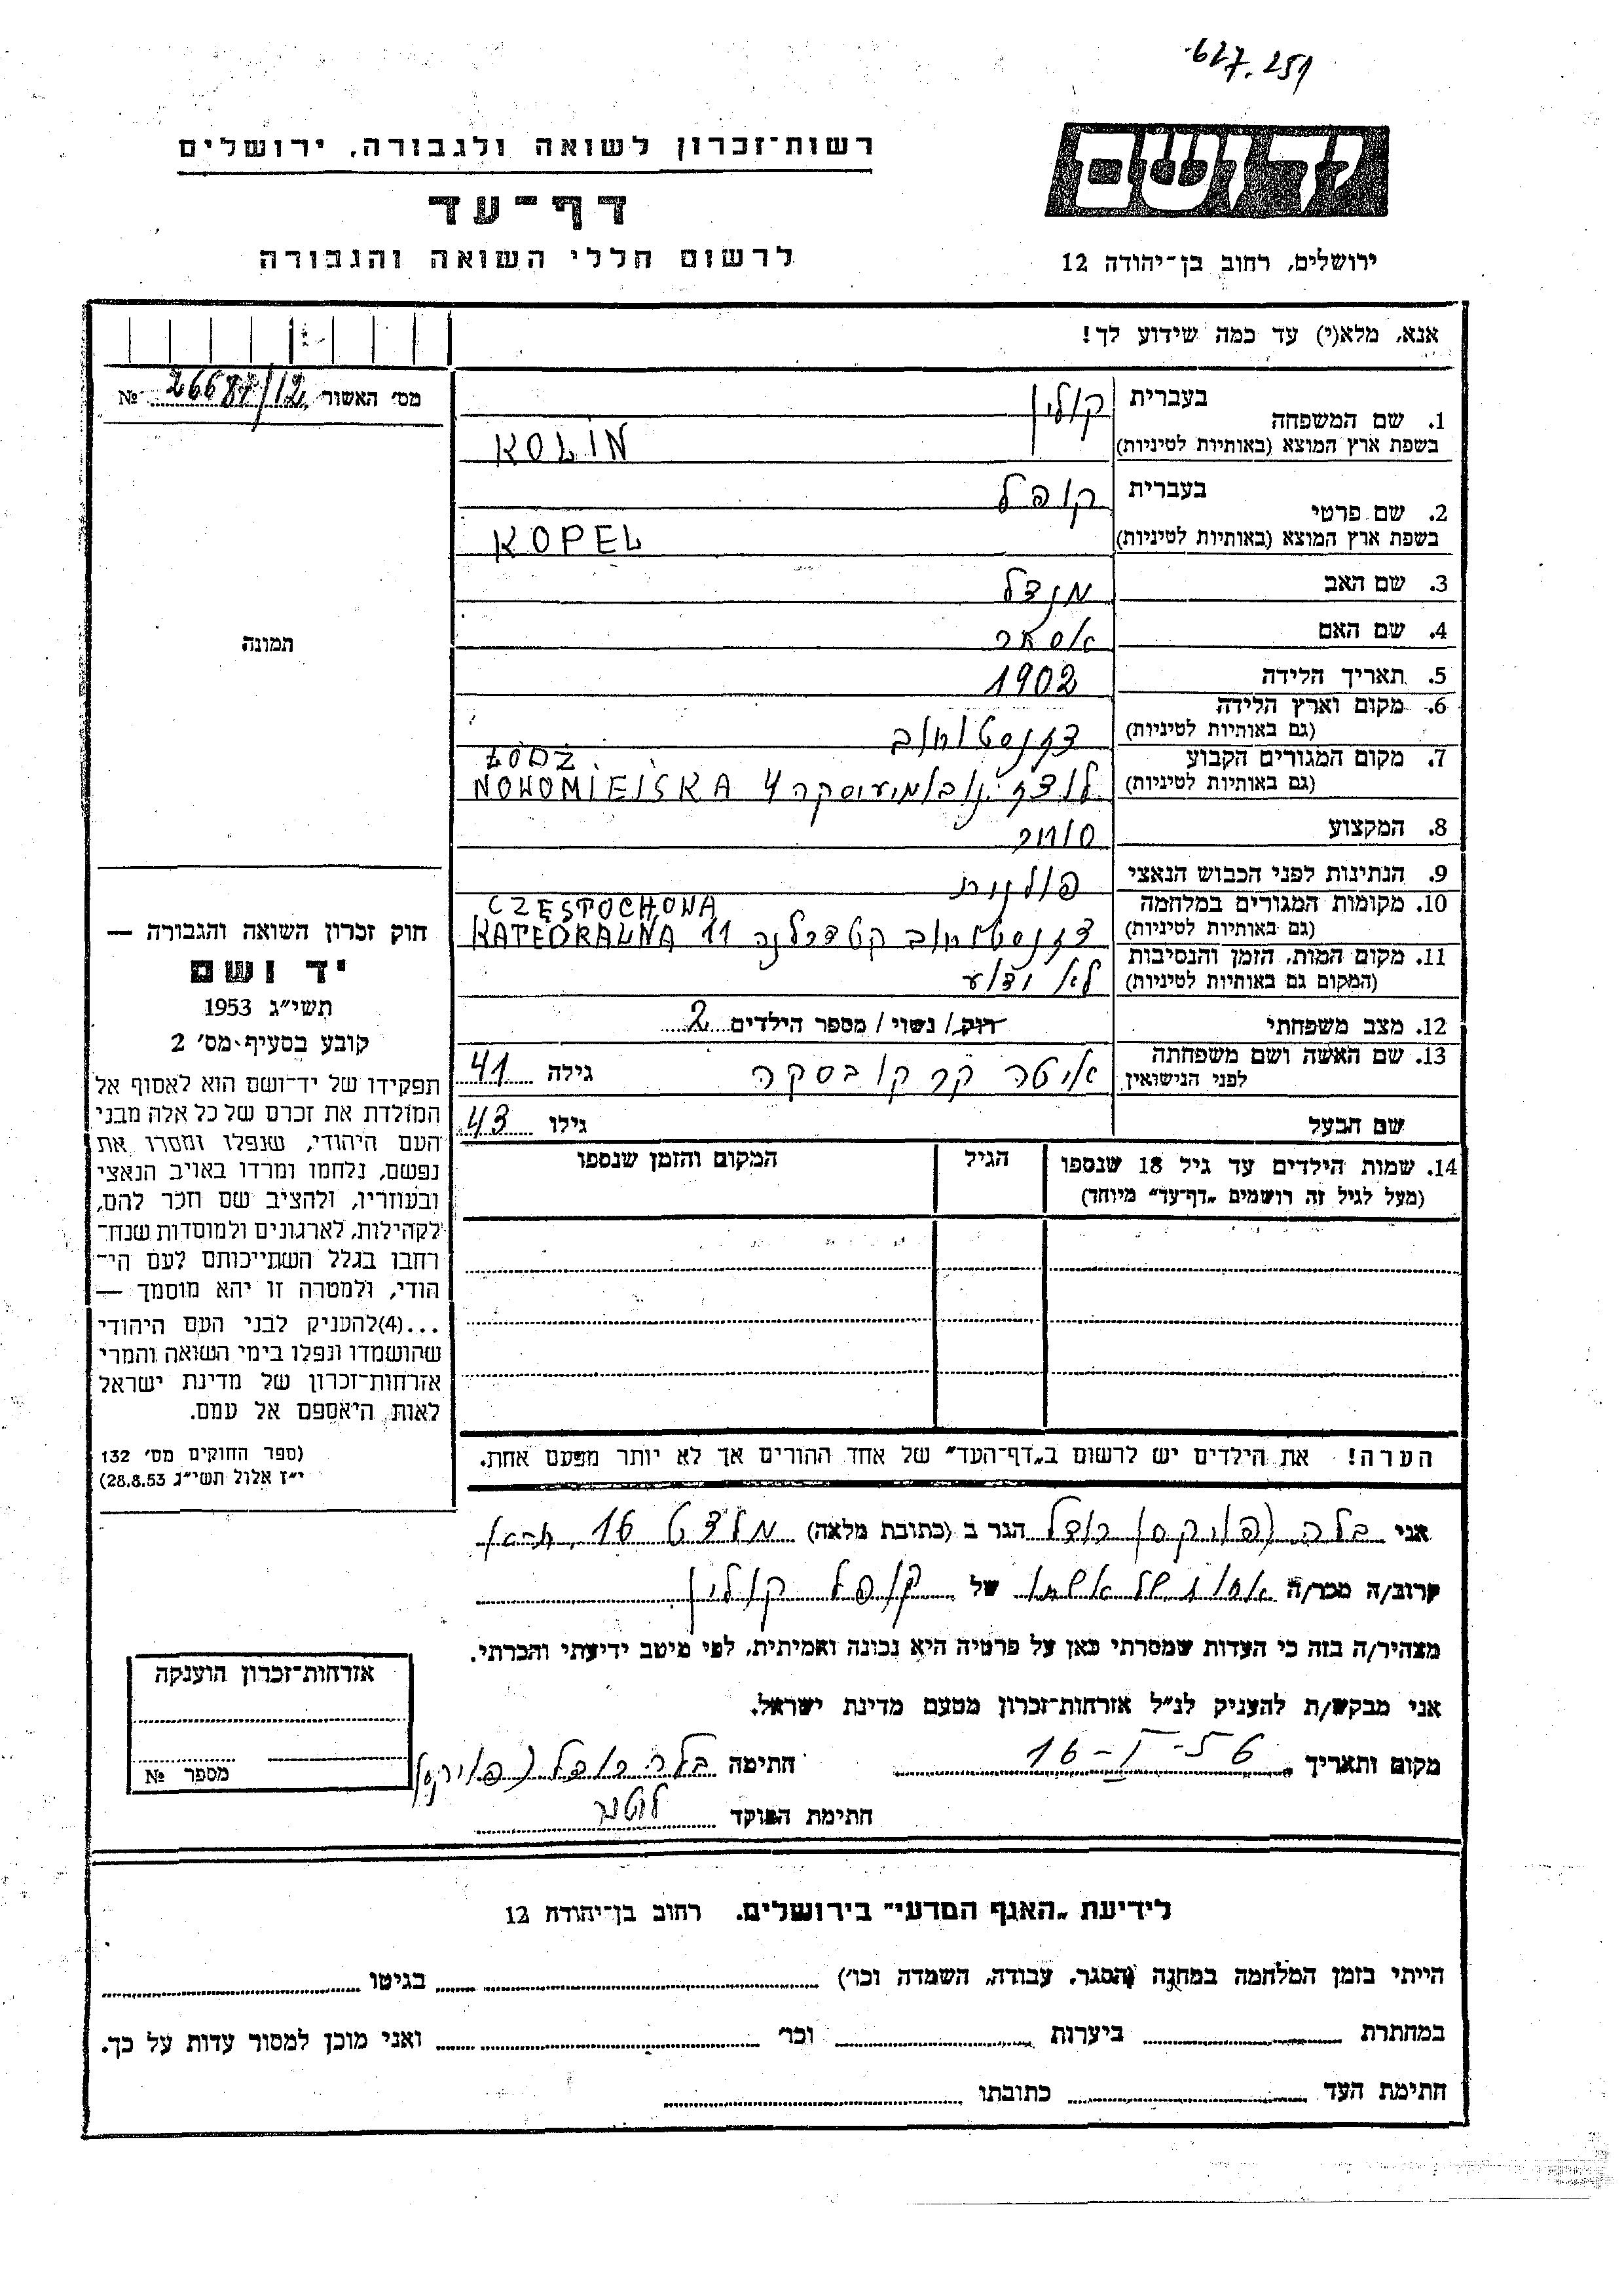 627.251
ידושם
רשות־זכרון לשואה ולגבורה, ירושלים
דף־עד
לרשום חללי השואה והגבורה
ירושלים, רחוב בן־יהודה 12
אנא, מלא(י) עד כמה שידוע לך!
מס' האשור 26687/12 №
תמונה
בעברית קולין
1. שם המשפחה
בשפת ארץ המוצא (באותיות לטיניות) KOLIN
בעברית קופל
2. שם פרטי
בשפת ארץ המוצא (באותיות לטיניות) KOPEL
3. שם האב מנדל
4. שם האם אסתר
5. תאריך הלידה 1902
6. מקום וארץ הלידה
(גם באותיות לטיניות) צ'נסטוחוב
7. מקום המגורים הקבוע ŁÓDŹ
(גם באותיות לטיניות) לודז' נובומיעיסקה 4 NOWOMIEJSKA
8. המקצוע סוחר
9. הנתינות לפני הכבוש הנאצי פולנית
10. מקומות המגורים במלחמה CZĘSTOCHOWA
(גם באותיות לטיניות) צ'נסטוחוב קטדרלנה 11 KATEDRALNA
11. מקום המות, הזמן והנסיבות
(המקום גם באותיות לטיניות) לא ידוע
12. מצב משפחתי רוק / נשוי / מספר הילדים 2
13. שם האשה ושם משפחתה
לפני הנישואין איטה קרקובסקה גילה 41
שם הבעל גילו 43
14. שמות הילדים עד גיל 18 שנספו הגיל המקום והזמן שנספו
(מעל לגיל זה רושמים „דף־עד" מיוחד)
הערה! את הילדים יש לרשום ב„דף־העד" של אחד ההורים אך לא יותר מפעם אחת.
חוק זכרון השואה והגבורה —
יד ושם
תשי"ג 1953
קובע בסעיף מס' 2
תפקידו של יד־ושם הוא לאסוף אל
המולדת את זכרם של כל אלה מבני
העם היהודי, שנפלו ומסרו את
נפשם, נלחמו ומרדו באויב הנאצי
ובעוזריו, ולהציב שם וזכר להם,
לקהילות, לארגונים ולמוסדות שנח־
רבו בגלל השתייכותם לעם הי־
הודי, ולמטרה זו יהא מוסמך —
...(4)להעניק לבני העם היהודי
שהושמדו ונפלו בימי השואה והמרי
אזרחות־זכרון של מדינת ישראל
לאות היאספם אל עמם.
(ספר החוקים מס' 132
י"ז אלול תשי"ג 28.8.53)
אני בלה (פוקס) רודל הגר ב (כתובת מלאה) 16
קרוב/ה מכר/ה אחות של אשתו של קופל קולין
מצהיר/ה בזה כי העדות שמסרתי כאן על פרטיה היא נכונה ואמיתית, לפי מיטב ידיעתי והכרתי.
אני מבקש/ת להעניק לנ"ל אזרחות־זכרון מטעם מדינת ישראל.
מקום ותאריך 16-I-56 חתימה בלה רודל
חתימת הפוקד
אזרחות־זכרון הוענקה
מספר №
לידיעת „האגף המדעי" בירושלים. רחוב בן־יהודה 12
הייתי בזמן המלחמה במחנה (הסגר, עבודה, השמדה וכו') בגיטו
במחתרת ביערות וכו' ואני מוכן למסור עדות על כך.
חתימת העד כתובתו